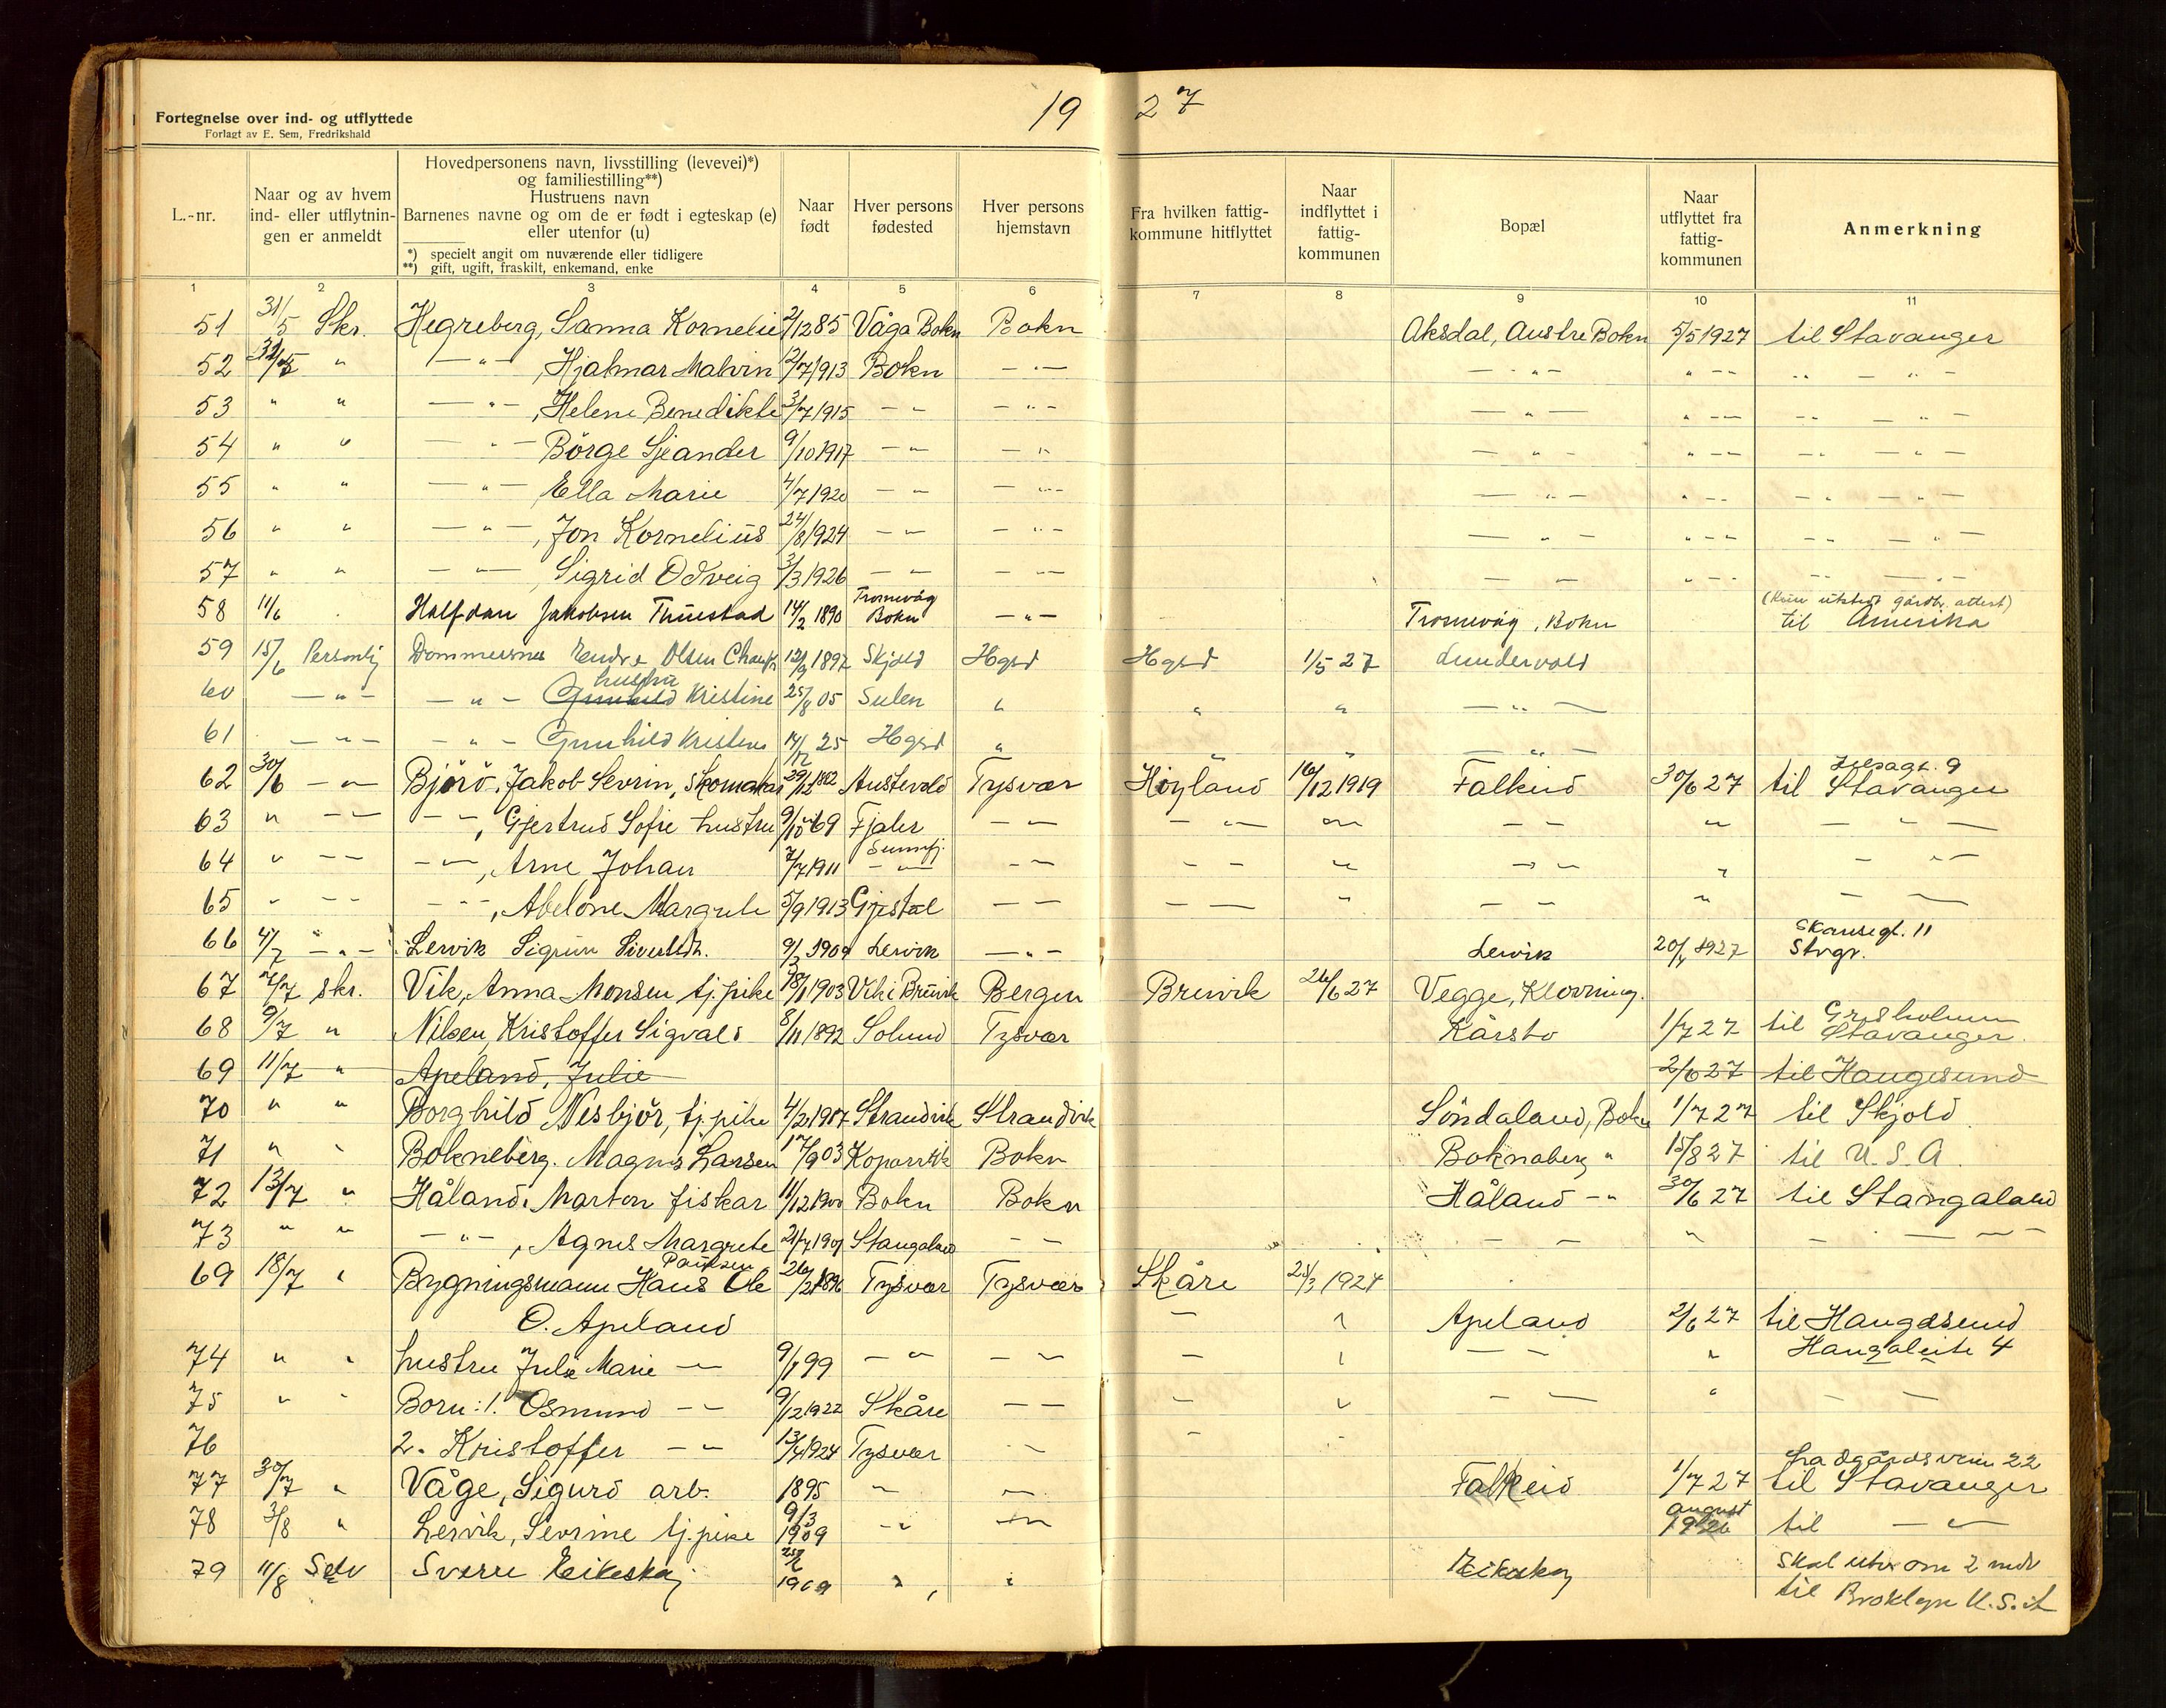 Fortegnelse over ind- og utflyttede
Forlagt av E. Sem, Fredrikshald
19 27
L.-nr.
Naar og av hvem
ind- eller utflytnin-
gen er anmeldt
Hovedpersonens navn, livsstilling (levevei)*)
og familiestilling**)
Hustruens navn
Barnenes navne og om de er født i egteskap (e)
eller utenfor (u)
*) specielt angit om nuværende eller tidligere
**) gift, ugift, fraskilt, enkemand, enke
Naar
født
Hver persons
fødested
Hver persons
hjemstavn
Fra hvilken fattig-
kommune hitflyttet
Naar
indflyttet i
fattig-
kommunen
Bopæl
Naar
utflyttet fra
fattig-
kommunen
Anmerkning
1 2 3 4 5 6 7 8 9 10 11
51 31/5 Skr. Hegreberg, Sanna Kornelie 2/12 85 Våga Bokn Bokn Aksdal, Austre Bokn 5/5 1927 til Stavanger
52 31/5 " — " — , Hjalmar Malvin 12/7 1913 Bokn — " — — " — " — — " — " —
53 " " — " — , Helene Benedikte 3/7 1915 — " — " — — " — " — — " — " —
54 " " — " — Børge Sjeander 9/10 1917 — " — " — " — " — — " — " —
55 " " — " — , Ella Marie 4/7 1920 — " — " — — " — " — — " — " —
56 " " — " — , Jon Kornelius 24/8 1924 — " — " — — " — " — — " — " —
57 " " — " — , Sigrid Odveig 3/3 1926 — " — " — — " — " — — " — " —
58 11/6 Halfdan Jakobsen Thuestad 14/2 1890 Trosnevåg Bokn — " — Trosnevåg, Bokn (Kun utstedt gårdbr. attest) til Amerika
59 15/6 Personlig Dommersnes Endre Olsen Chauf. 12/9 1897 Skjold Hgsd Hgsd 1/5 27 Lundervold
60 — " — — " — hustru Kristine 25/8 05 Sulen " " " — " —
61 — " — — " — Gunhild Kristine 14/12 25 Hgsd " " " — " —
62 30/6 — " Bjørø, Jakob Sevrin, Skomakar 29/12 1882 Austevold Tysvær Høyland 16/12 1919 Falkeid 30/6 27 til Stavanger
63 " — " — " , Gjertrud Sofie hustru 9/10 69 Fjaler — " — " " — " " — "
Sunnfj.
64 " — " — " , Arne Johan 7/7 1911 — " — " — " " — " " — "
65 " — " — " , Abelone Margrete 5/9 1913 Gjestal — " — " " — " " — "
66 4/7 — " — Lervik Sigrun Sivertsdt. 9/3 1909 Lervik — " — Lervik 1927 Skansegt. 11 Stvgr.
67 7/7 Skr. Vik, Anna Monsen tj.pike 18/1 1903 Vik i Bruvik Bergen Brewik 26/6 27 Vegge, Klovning.
68 9/7 " Nilsen, Kristoffer Sigvald 8/11 1892 Solund Tysvær Kårstø 1/7 27 til Grisholmen Stavanger.
69 11/7 " Apeland, Julie 2/6 27 til Haugesund
70 " " Borghild Nesbjør, tj.pike 4/2 1907 Strandvik Strandvik Søndaland, Bokn 1/7 27 til Skjold
71 " " Bokneberg. Magnus Larsen 17/9 03 Kopervik Bokn Boknaberg " 15/8 27 til U.S.A.
72 13/7 " Håland, Marton fiskar 11/12 1900 Bokn Bokn Håland — " 30/6 27 til Stangaland
73 " " — " — , Agnes Margrete 21/4 1901 Stangaland — " — " " — " —
69 18/7 " Bygningsmann Hans Ole Paulsen 26/2 1896 Tysvær Tysvær Skåre 28/3 1924
O. Apeland — " Apeland 2/6 27 til Haugesund
74 " " hustru Julie Marie — " 9/1 99 — " — " — " — " " Haugaleite 4
75 " " Born: 1. Osmund — " 9/12 1922 Skåre — " — " — " " — "
76 2. Kristoffer — " 13/4 1924 Tysvær — " — "
77 30/7 " Våge, Sigurd arb. 1895 " — " Falkeid 1/7 27 Ladgårdsveien 22 til Stavanger
78 3/8 " Lervik, Sevrine tj.pike 9/3 1909 — " — " august 1926 til — " —
79 11/8 Selv Sverre Eikeskog 1909 " " Eikeskog Skal utv. om 2 mdr
til Broklyn U.S.A